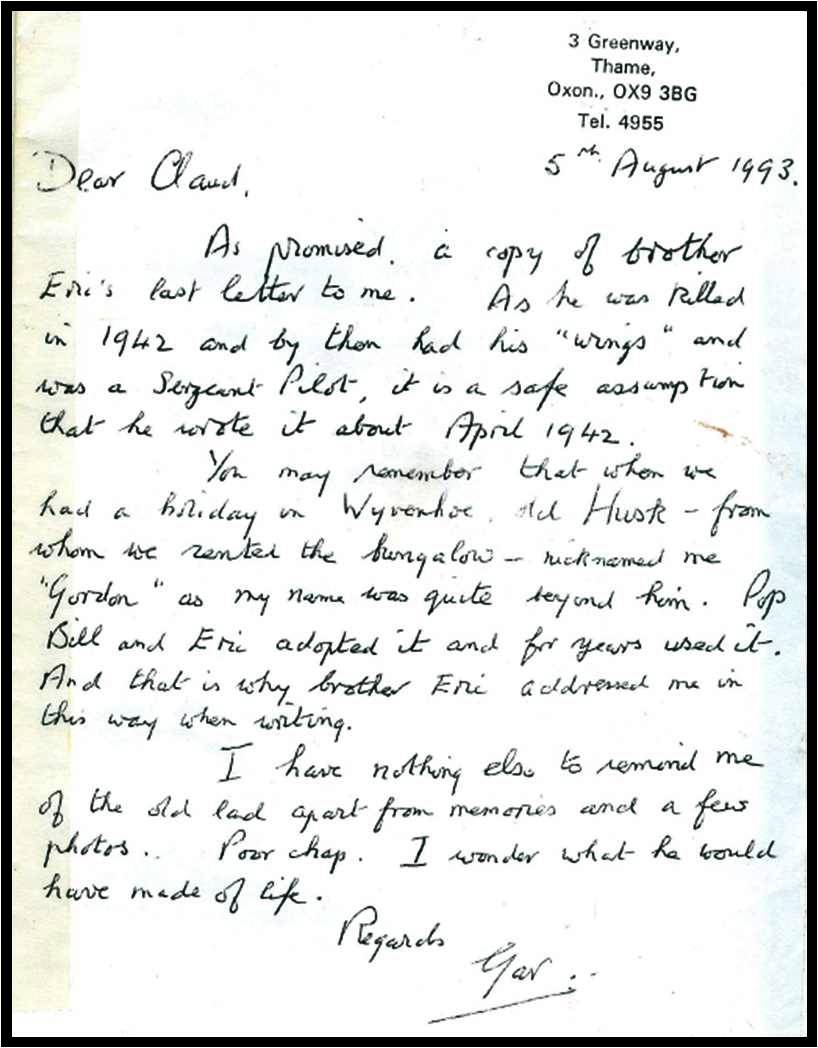 3 Greenway,
Thame,
Oxon., OX9 3BG
Tel. 4955
5th August 1993.
Dear Claud,
As promised, a copy of brother
Eric's last letter to me. As he was killed
in 1942 and by then had his "wings" and
was a Sergeant Pilot, it is a safe assumption
that he wrote it about April 1942.
You may remember that when we
had a holiday in Wyvenhoe, old Husk – from
whom we rented the bungalow – nicknamed me
"Gordon" as my name was quite beyond him. Pop
Bill and Eric adopted it and for years used it.
And that is why brother Eric addressed me in
this way when writing.
I have nothing else to remind me
of the old lad apart from memories and a few
photos.. Poor chap. I wonder what he would
have made of life.
Regards
Gar..